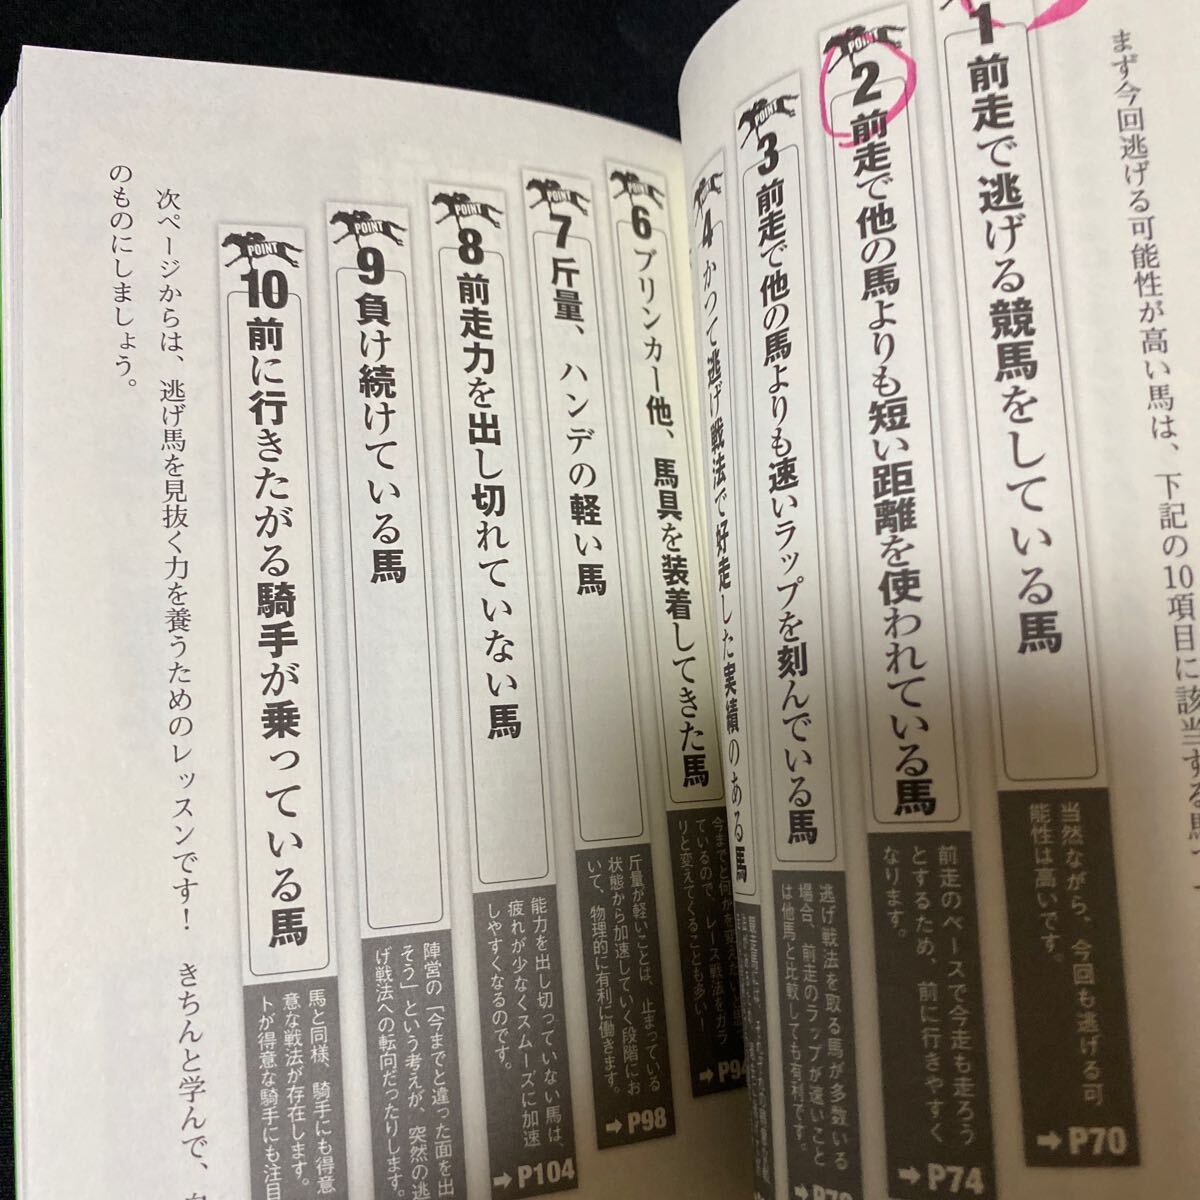 まず今回逃げる可能性が高い馬は、下記の10項目に該当する馬で
1
前走で逃げる競馬をしている馬
当然ながら、今回も逃げる可
能性は高いです。
➡P70
POINT
2
前走で他の馬よりも短い距離を使われている馬
前走のペースで今走も走ろう
とするため、前に行きやすく
なります。
➡P74
POINT
3
前走で他の馬よりも速いラップを刻んでいる馬
逃げ戦法を取る馬が多数いる
場合、前走のラップが速いこと
は他馬と比較しても有利です。
POINT
4
かつて逃げ戦法で好走した実績のある馬
POINT
6
ブリンカー他、馬具を装着してきた馬
今までと何かを変えたいと思
っているので、レース戦法をガラ
リと変えてくることも多い!
➡P94
POINT
7
斤量、ハンデの軽い馬
斤量が軽いことは、止まっている
状態から加速していく段階にお
いて、物理的に有利に働きます。
➡P98
POINT
8
前走力を出し切れていない馬
能力を出し切っていない馬は、
疲れが少なくスムーズに加速
しやすくなるのです。
➡P104
POINT
9
負け続けている馬
陣営の「今までと違った面を出
そう」という考えが、突然の逃
げ戦法への転向だったりします。
POINT
10
前に行きたがる騎手が乗っている馬
馬と同様、騎手にも得意
意な戦法が存在します。
トが得意な騎手にも注目
次ページからは、逃げ馬を見抜く力を養うためのレッスンです! きちんと学んで、
のものにしましょう。